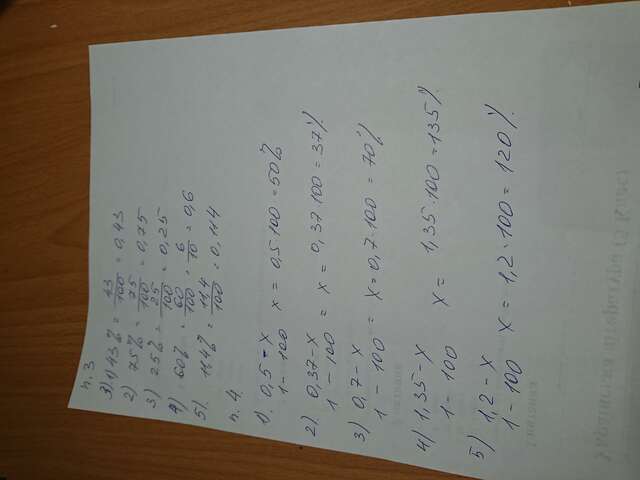 n. 3
3) 1) 43% = 43/100 = 0,43
2) 75% = 75/100 = 0,75
3) 25% = 25/100 = 0,25
4) 60% = 60/100 = 6/10 = 0,6
5) 11,4% = 11,4/100 = 0,114
n. 4.
1). 0,5 - x
1 - 100 x = 0,5·100 = 50%
2). 0,37 - x
1 - 100 = x = 0,37·100 = 37%
3) 0,7 - x
1 - 100 = x = 0,7·100 = 70%
4) 1,35 - x
1 - 100 x = 1,35·100 = 135%
5) 1,2 - x
1 - 100 x = 1,2·100 = 120%.